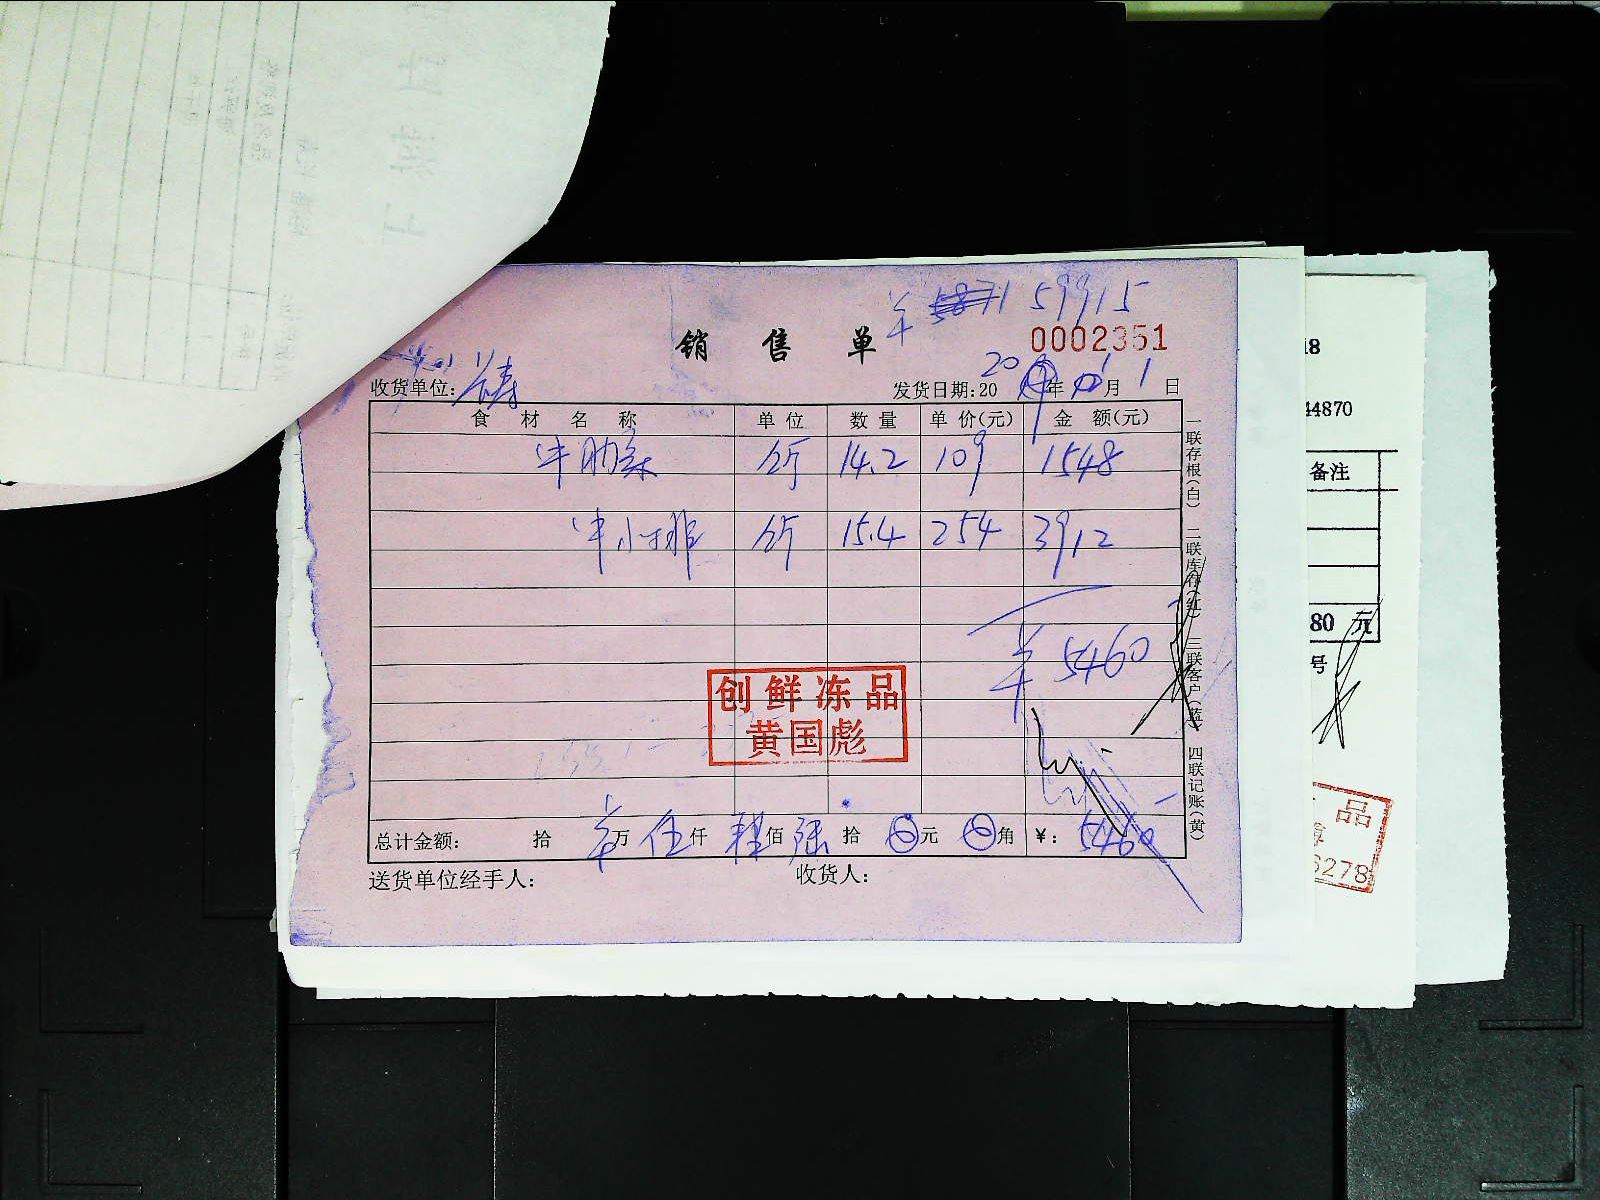 ¥ 59915
销 售 单
0002351
收货单位:
发货日期:20 年 月 1 日
食 材 名 称 单 位 数 量 单 价(元) 金 额(元)
牛肋条 公斤 14.2 109 1548
牛小排 公斤 15.4 254 3912
¥ 5460
创鲜冻品
黄国彪
总计金额: 拾 万 伍仟 肆佰 陆拾 元 角 ¥: 5460
送货单位经手人: 收货人:
一联存根(白) 二联库存(红) 三联客户(蓝) 四联记账(黄)
18
44870
备注
80 元
号
品
6278